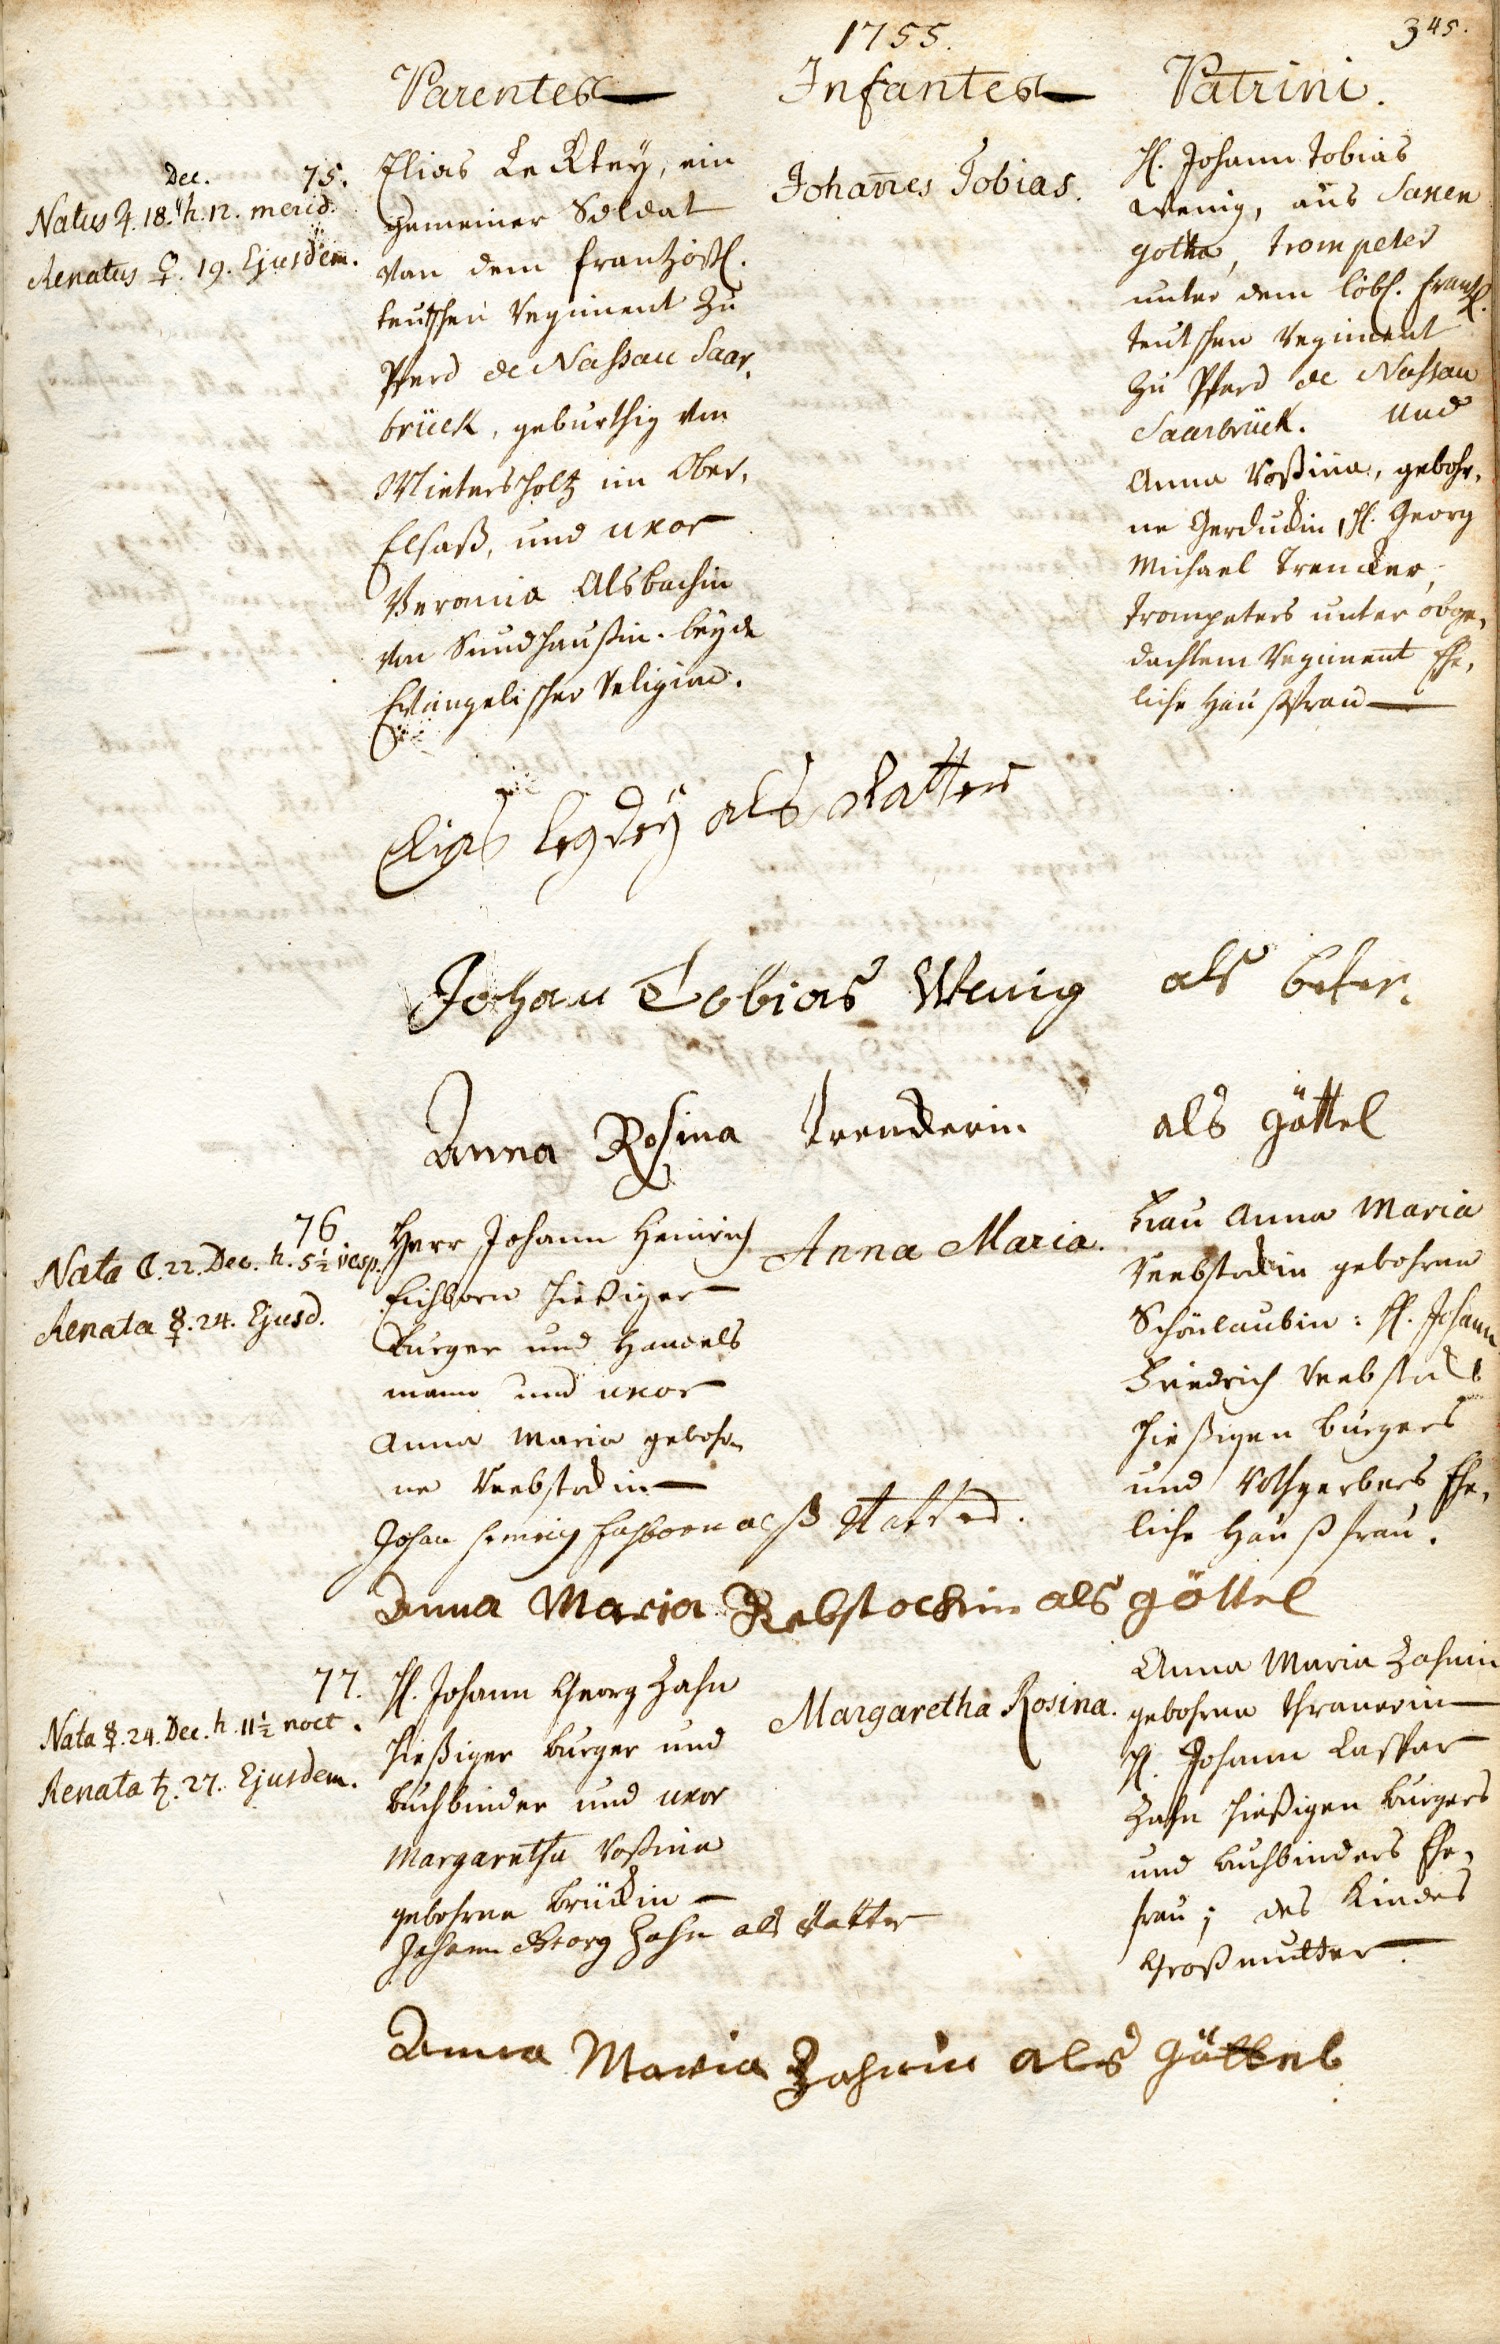 1755.
345.
Parentes
Infantes
Patrini.
Dec. 75.
Natus ♃. 18. h. 12. merid.
Renatus ♀. 19. Ejusdem.
Elias Le Rley, ein
gemeiner Soldat
von dem frantzösß.
teutschen Regiment zu
Pferd de Nassau Saar-
brück, gebürthig von
Mietersholtz im Ober-
Elsaß, und uxor
Veronia Alsbachin
von Sundhaußin. beyde
Evangelischer Religion.
Johannes Tobias.
H. Johann Tobias
Wenig, aus Saxen
gotha, trompeter
unter dem löbl. frantz.
teutschen Regiment
zu Pferd de Nassau
Saarbrück. und
Anna Rosina, gebohr-
ne Gerduckin, H. Georg
Michael Trencker,
Trompeters unter obge-
dachtem Regiment Ehe-
liche Haußfrau
Elias als Vatter
Johan Tobias Wenig als
Anna Rosina Trenckerin als göttel
76
Nata ☾. 22. Dec. h. 5½ vesp.
Renata ☿. 24. Ejusd.
Herr Johann Heinrich
Eichborn hießiger
Burger und Handels
mann und uxor
Anna Maria geboh-
ne Rebstockin
Anna Maria.
Frau Anna Maria
Rebstockin gebohrne
Schönlaubin: H. Johann
Friedrich Rebstock
hießigen Burgers
und Rothgerbers Ehe-
liche Haußfrau.
Johan Heinrich Eichborn alß Vatter.
Anna Maria Rebstockin als göttel
77.
Nata ☿. 24. Dec. h. 11½ noct.
Renata ♄. 27. Ejusdem.
H. Johann Georg Zahn
hießiger burger und
buchbinder und uxor
Margaretha Rosina
gebohrne Brückin
Margaretha Rosina.
Anna Maria Zahnin
gebohrne Thranerin
H. Johann Caspar
Zahn hießigen burgers
und buchbinders Ehe-
frau; des Kindes
Großmutter.
Johann Georg Zahn als Vatter
Anna Maria Zahnin als Göttel